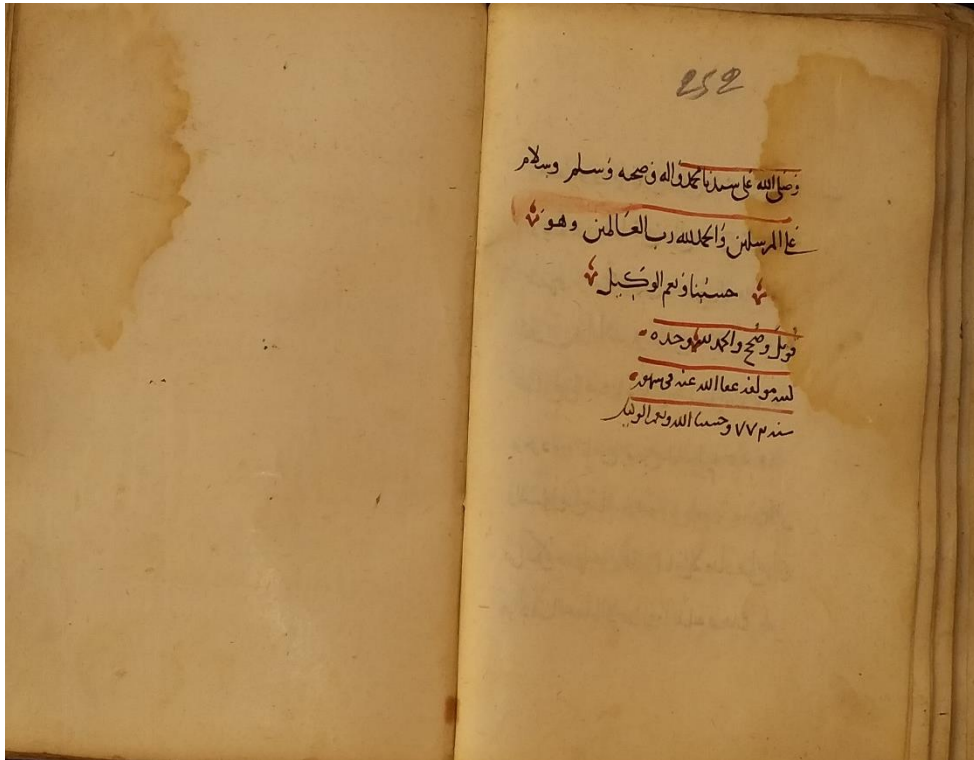 252
وصلى الله على سيدنا محمد واله وصحبه وسلم وسلام
على المرسلين والحمد لله رب العالمين وهو
حسبنا ونعم الوكيل
قوبل وصحح والحمد لله وحده
مولفه عفا الله عنه في شهور
سنه ٧٧٣ وحسبنا الله ونعم الوكيل